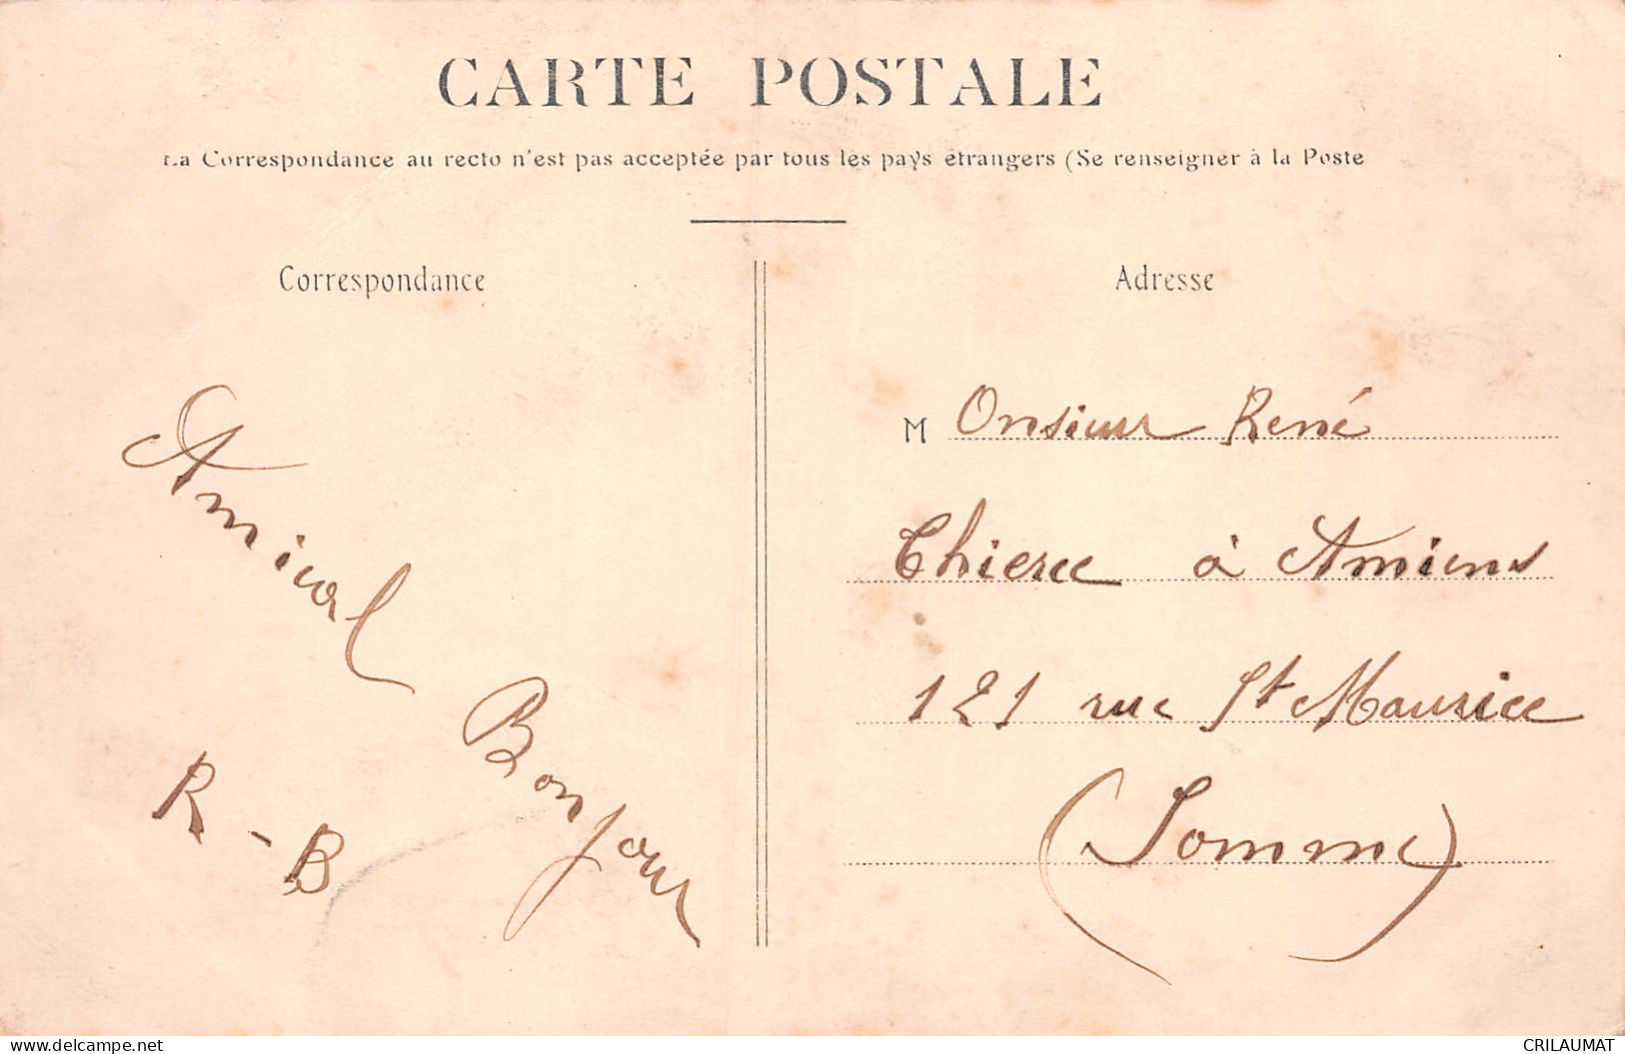 CARTE POSTALE
La Correspondance au recto n'est pas acceptée par tous les pays étrangers (Se renseigner à la Poste
Correspondance
Amical
Bonjour
R - B
Adresse
M Onsieur René
Thieree à Amiens
121 rue St Maurice
(Somme)
www.delcampe.net
CRILAUMAT